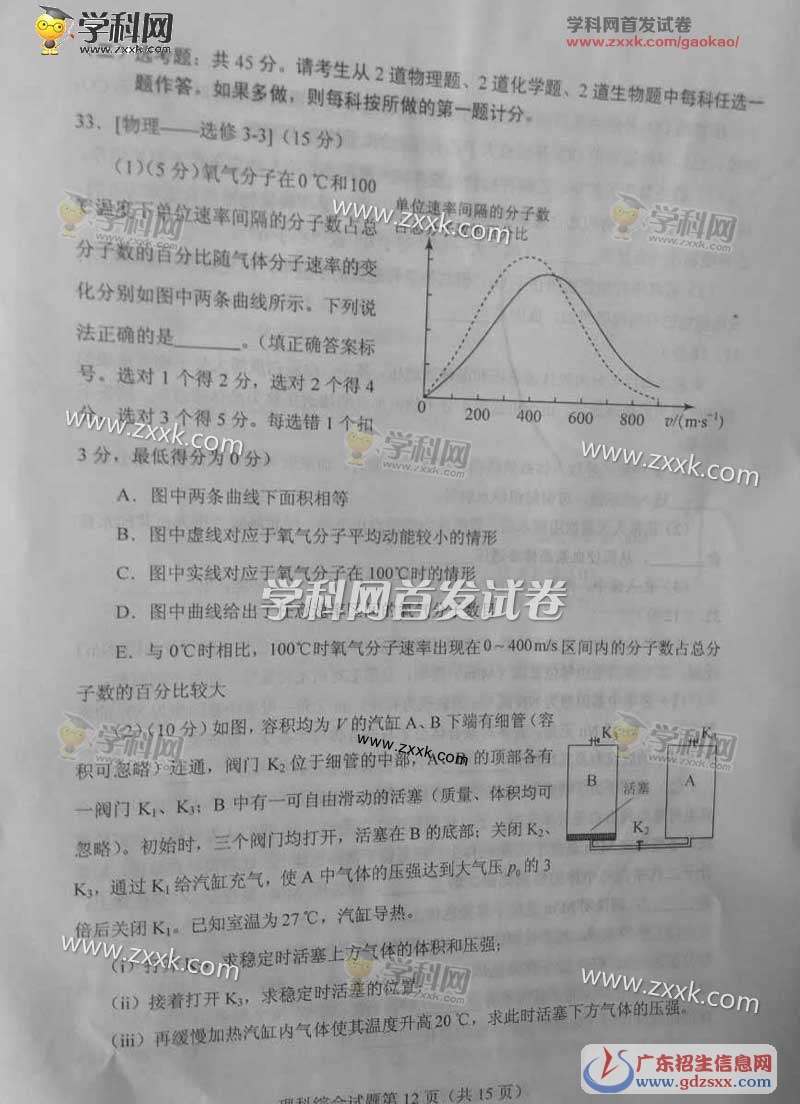 学科网
www.zxxk.com
学科网首发试卷
www.zxxk.com/gaokao/
选考题：共 45 分。请考生从 2 道物理题、2 道化学题、2 道生物题中每科任选一
题作答。如果多做，则每科按所做的第一题计分。
33．[物理——选修 3-3]（15 分）
（1）（5 分）氧气分子在 0 ℃和 100
℃温度下单位速率间隔的分子数占总
分子数的百分比随气体分子速率的变
化分别如图中两条曲线所示。下列说
法正确的是_______。（填正确答案标
号。选对 1 个得 2 分，选对 2 个得 4
分，选对 3 个得 5 分。每选错 1 个扣
3 分，最低得分为 0 分）
单位速率间隔的分子数
0 200 400 600 800 v/(m·s⁻¹)
学科网
www.zxxk.com
www.zxxk.com
学科网
www.zxxk.com
www.zxxk.com
学科网
www.zxxk.com
A．图中两条曲线下面积相等
B．图中虚线对应于氧气分子平均动能较小的情形
C．图中实线对应于氧气分子在 100℃时的情形
学科网首发试卷
D．图中曲线给出了任意速率区间的氧气分子数目
E．与 0℃时相比，100℃时氧气分子速率出现在 0～400 m/s 区间内的分子数占总分
子数的百分比较大
（2）（10 分）如图，容积均为 V 的汽缸 A、B 下端有细管（容
积可忽略）连通，阀门 K₂ 位于细管的中部，A、B 的顶部各有
一阀门 K₁、K₃；B 中有一可自由滑动的活塞（质量、体积均可
忽略）。初始时，三个阀门均打开，活塞在 B 的底部；关闭 K₂、
K₃，通过 K₁ 给汽缸充气，使 A 中气体的压强达到大气压 p₀ 的 3
倍后关闭 K₁。已知室温为 27 ℃，汽缸导热。
K₁
K₃
B
A
活塞
K₂
学科网
www.zxxk.com
www.zxxk.com
学科网
www.zxxk.com
（i）打开 K₂，求稳定时活塞上方气体的体积和压强；
（ii）接着打开 K₃，求稳定时活塞的位置；
（iii）再缓慢加热汽缸内气体使其温度升高 20 ℃，求此时活塞下方气体的压强。
www.zxxk.com
学科网
www.zxxk.com
www.zxxk.com
理科综合试题第 12 页（共 15 页）
广东招生信息网
www.gdzsxx.com